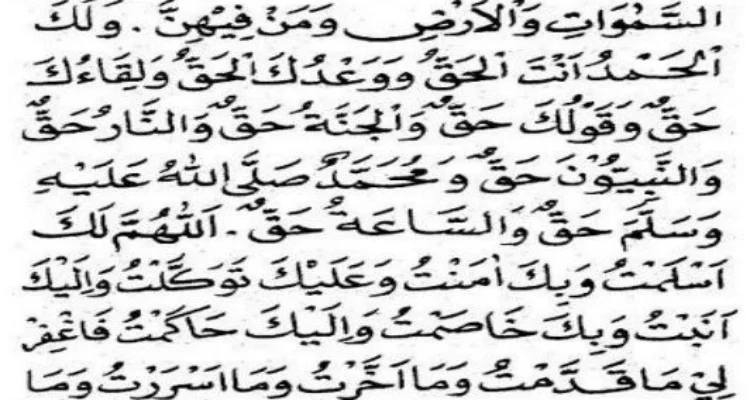 السَّمٰوَاتِ وَالْاَرْضِ وَمَنْ فِيْهِنَّ. وَلَكَ
الْحَمْدُ اَنْتَ الْحَقُّ وَوَعْدُكَ الْحَقُّ وَلِقَاءُكَ
حَقٌّ وَقَوْلُكَ حَقٌّ وَالْجَنَّةُ حَقٌّ وَالنَّارُ حَقٌّ
وَالنَّبِيُّوْنَ حَقٌّ وَمُحَمَّدٌ صَلَّى اللهُ عَلَيْهِ
وَسَلَّمَ حَقٌّ وَالسَّاعَةُ حَقٌّ. اَللّٰهُمَّ لَكَ
اَسْلَمْتُ وَبِكَ اٰمَنْتُ وَعَلَيْكَ تَوَكَّلْتُ وَاِلَيْكَ
اَنَبْتُ وَبِكَ خَاصَمْتُ وَاِلَيْكَ حَاكَمْتُ فَاغْفِرْ
لِيْ مَا قَدَّمْتُ وَمَا اَخَّرْتُ وَمَا اَسْرَرْتُ وَمَا